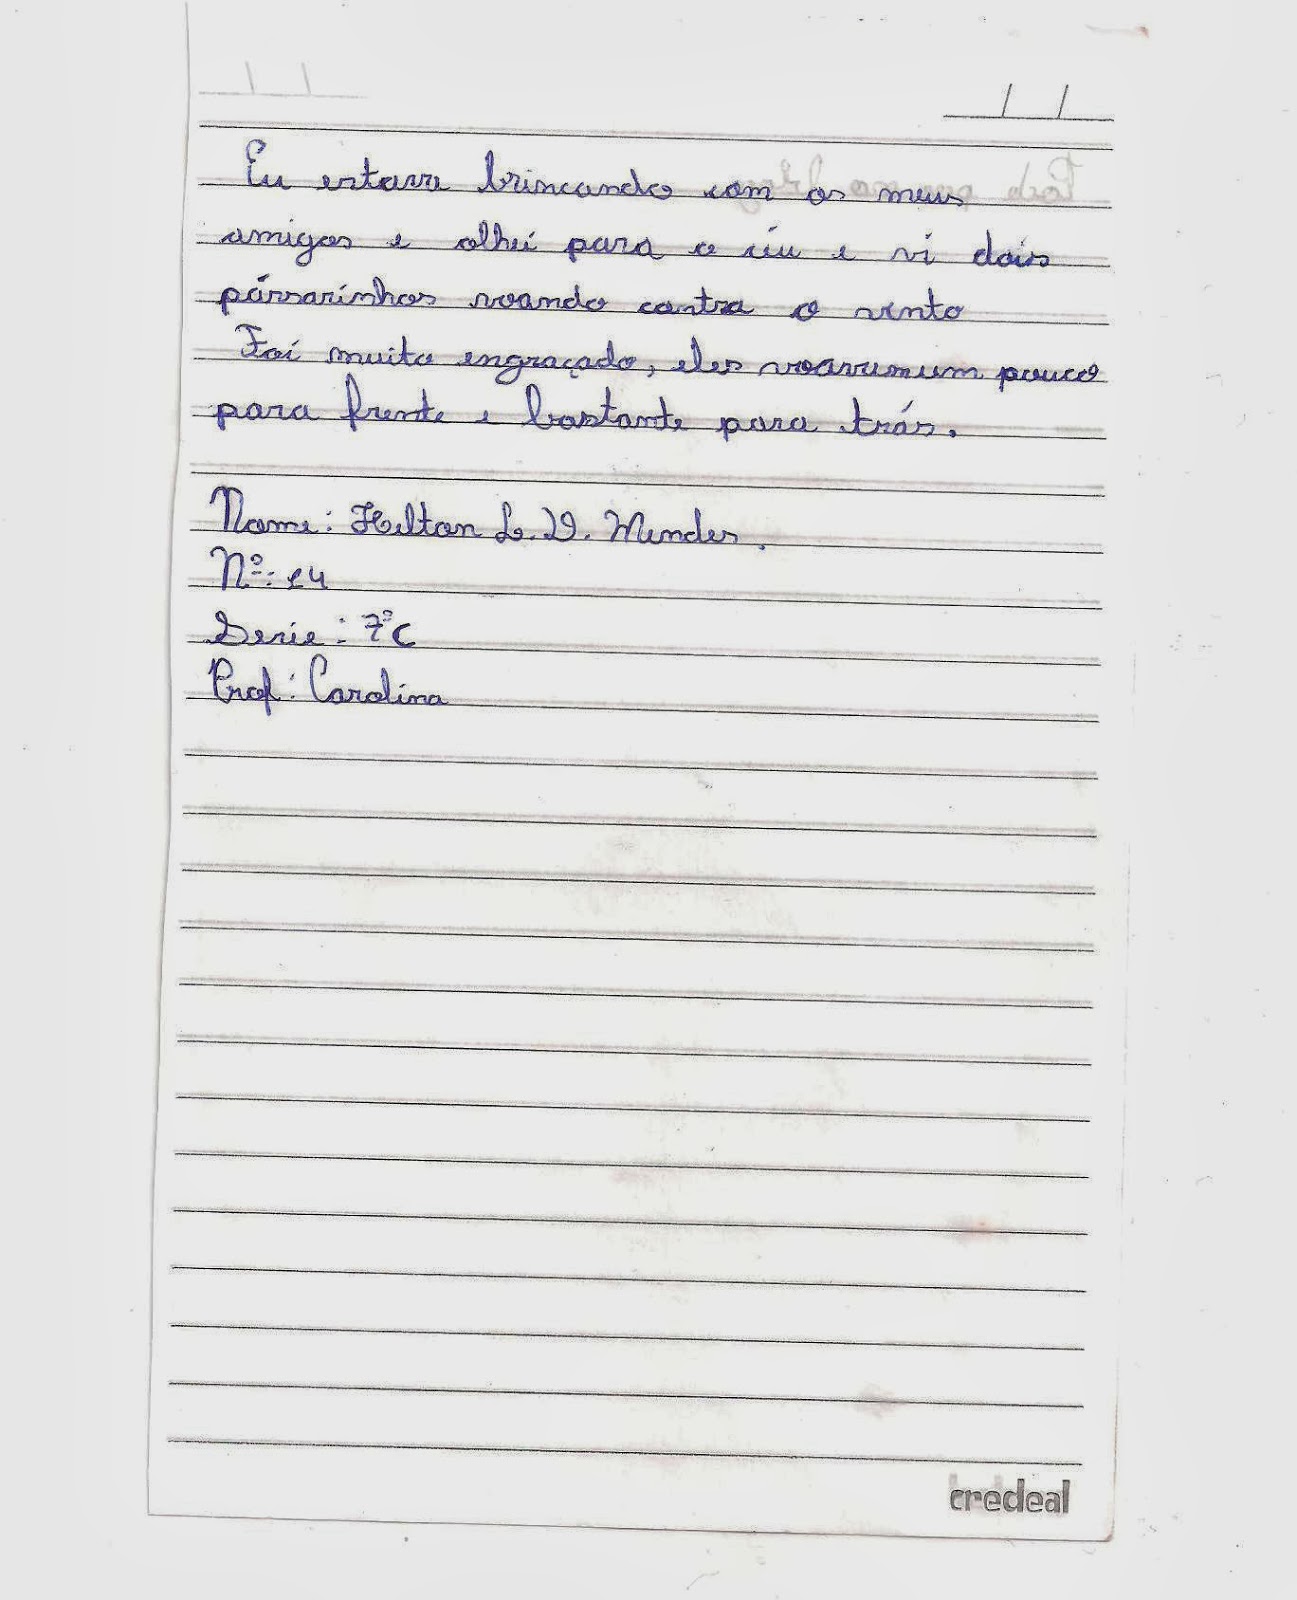 Eu estava brincando com os meus
amigos e olhei para o céu e vi dois
pássarinhos voando contra o vento
Foi muito engraçado, eles voavam um pouco
para frente e bastante para trás.
Nome: Helton L. V. Mendes.
Nº: 14
Serie: 7ºC
Prof: Carolina
credeal